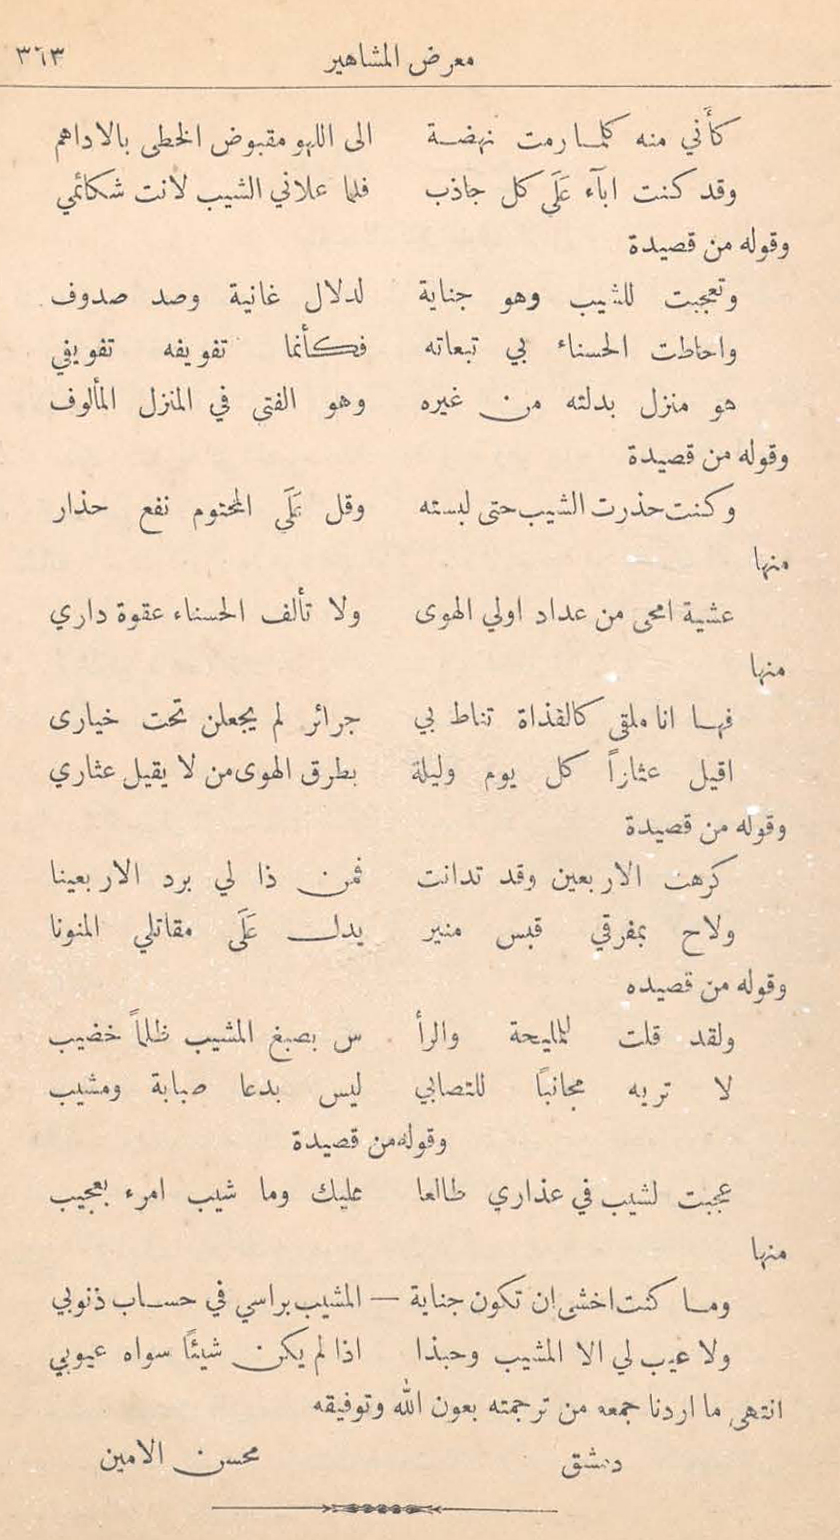 معرض المشاهير ٣٦٣
كأني منه كلما رمت نهضة الى اللهو مقبوض الخطى بالاداهم
وقد كنت ابآء عَلَى كل جاذب فلما علاني الشيب لانت شكائمي
وقوله من قصيدة
وتعجبت للشيب وهو جناية لدلال غانية وصد صدوف
واحاطت الحسناء بي تبعاته فكأنما تفويفه تفويفي
هو منزل بدلته من غيره وهو الفتى في المنزل المألوف
وقوله من قصيدة
وكنت حذرت الشيب حتى لبسته وقل عَلَى المحتوم نفع حذار
منها
عشية امحى من عداد اولي الهوى ولا تألف الحسناء عقوة داري
منها
فها انا ملقى كالقذاة تناط بي جرائر لم يجعلن تحت خيارى
اقيل عثاراً كل يوم وليلة بطرق الهوى من لا يقيل عثاري
وقوله من قصيدة
كرهت الاربعين وقد تدانت فمن ذا لي برد الاربعينا
ولاح بمفرقي قبس منير يدل عَلَى مقاتلي المنونا
وقوله من قصيده
ولقد قلت للمليحة والرأ س بصبغ المشيب ظلماً خضيب
لا تريه مجانباً للتصابي ليس بدعا صبابة ومشيب
وقوله من قصيدة
عجبت لشيب في عذاري طالعا عليك وما شيب امرء بعجيب
منها
وما كنت اخشى ان تكون جناية — المشيب براسي في حساب ذنوبي
ولا عيب لي الا المشيب وحبذا اذا لم يكن شيئاً سواه عيوبي
انتهى ما اردنا جمعه من ترجمته بعون الله وتوفيقه
دمشق محسن الامين